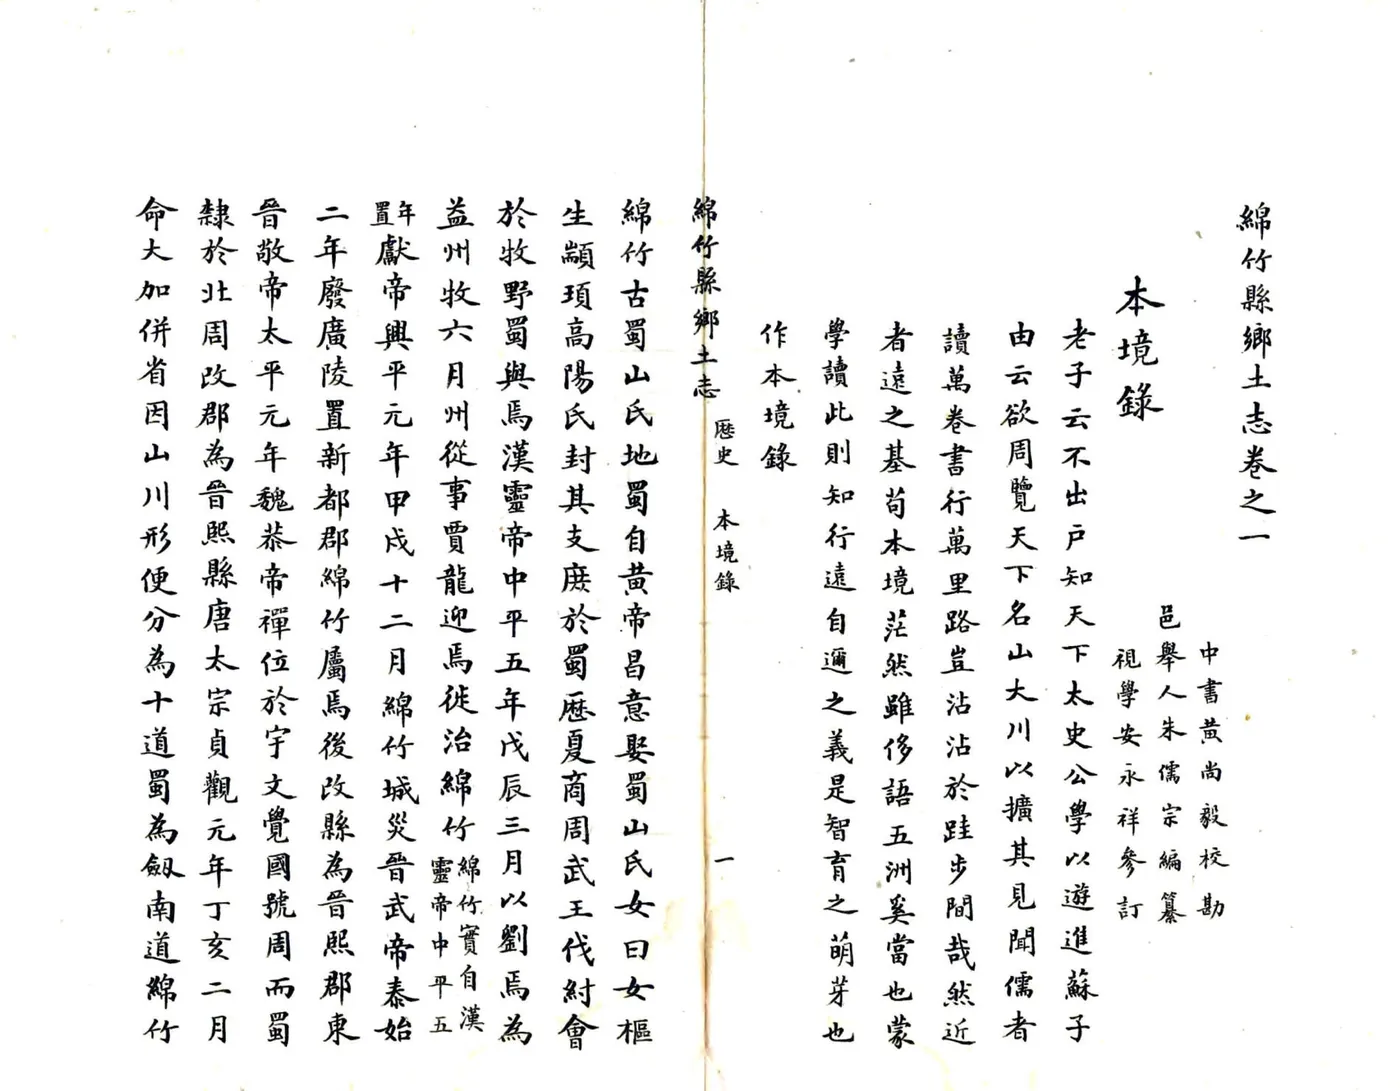 綿竹縣鄉土志卷之一
中書黃尚毅校勘
邑舉人朱儒宗編纂
視學安永祥參訂
本境錄
老子云不出戶知天下太史公學以遊進蘇子
由云欲周覽天下名山大川以擴其見聞儒者
讀萬卷書行萬里路豈沾沾於跬步間哉然近
者遠之基苟本境茫然雖侈語五洲奚當也蒙
學讀此則知行遠自邇之義是智育之萌芽也
作本境錄
綿竹縣鄉土志 歷史 本境錄 一
綿竹古蜀山氏地蜀自黃帝昌意娶蜀山氏女曰女樞
生顓頊高陽氏封其支庶於蜀歷夏商周武王伐紂會
於牧野蜀與焉漢靈帝中平五年戊辰三月以劉焉為
益州牧六月州從事賈龍迎焉徙治綿竹綿竹實自漢靈帝中平五
年置獻帝興平元年甲戌十二月綿竹城災晉武帝泰始
二年廢廣陵置新都郡綿竹屬焉後改縣為晉熙郡東
晉敬帝太平元年魏恭帝禪位於宇文覺國號周而蜀
隸於北周改郡為晉熙縣唐太宗貞觀元年丁亥二月
命大加併省因山川形便分為十道蜀為劔南道綿竹